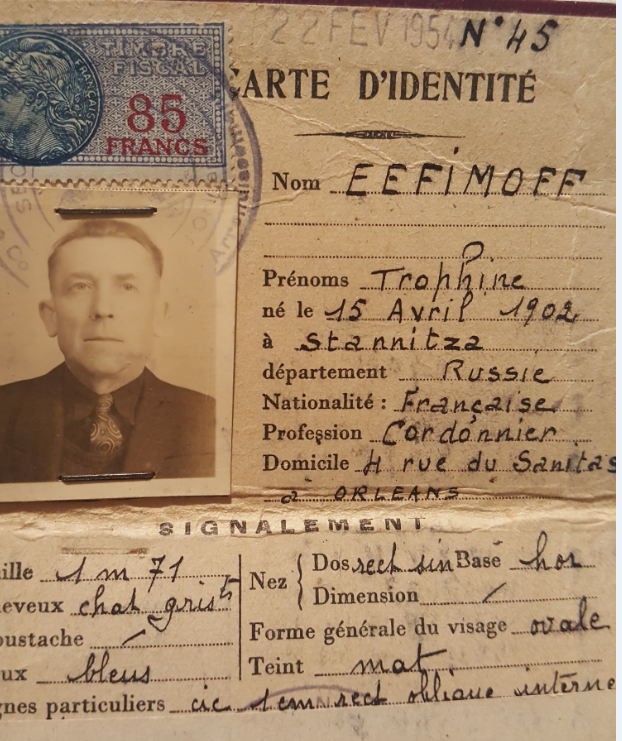 22 FEV 1954 N° 45
TIMBRE
FISCAL
85
FRANCS
FRANÇAISE
CARTE D'IDENTITÉ
Nom EEFIMOFF
Prénoms Trophine
né le 15 Avril 1902
à Stannitza
département Russie
Nationalité : Française
Profession Cordonnier
Domicile 4 rue du Sanitas
à ORLEANS
SIGNALEMENT
ille 1 m 71
Nez Dos rect sin Base hor
Dimension
eveux chat grists
oustache
Forme générale du visage ovale
ux bleus
Teint mat
gnes particuliers cic 1 cm rect oblique interne